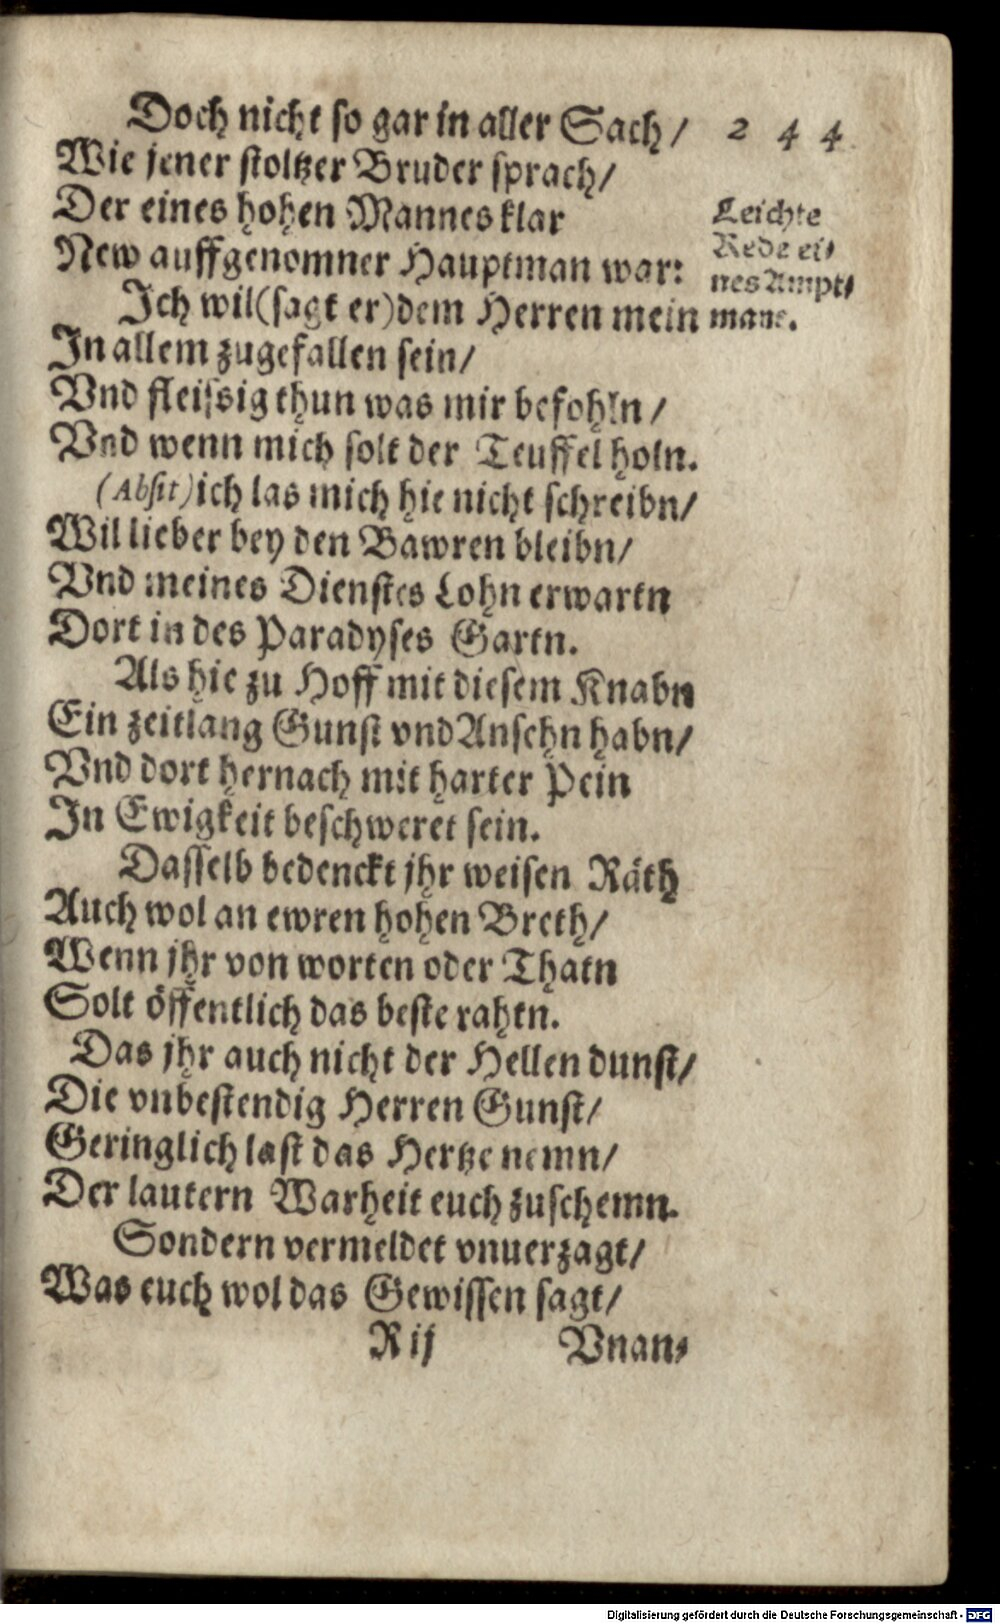 Doch nicht so gar in aller Sach / 244
Wie jener stoltzer Bruder sprach/
Der eines hohen Mannes klar
New auffgenomner Hauptman war:
Leichte
Rede ei⸗
nes Ampt⸗
mans.
Ich wil (sagt er) dem Herren mein
In allem zugefallen sein/
Vnd fleissig thun was mir befohln /
Vnd wenn mich solt der Teuffel holn.
(Absit) ich las mich hie nicht schreibn/
Wil lieber bey den Bawren bleibn/
Vnd meines Dienstes Lohn erwartn
Dort in des Paradyses Gartn.
Als hie zu Hoff mit diesem Knabn
Ein zeitlang Gunst vnd Ansehn habn/
Vnd dort hernach mit harter Pein
In Ewigkeit beschweret sein.
Dasselb bedenckt jhr weisen Räth
Auch wol an ewren hohen Breth/
Wenn jhr von worten oder Thatn
Solt öffentlich das beste rahtn.
Das jhr auch nicht der Hellen dunst/
Die vnbestendig Herren Gunst/
Geringlich last das Hertze nemn/
Der lautern Warheit euch zuschemn.
Sondern vermeldet vnuerzagt/
Was euch wol das Gewissen sagt/
R ij Vnan⸗
Digitalisierung gefördert durch die Deutsche Forschungsgemeinschaft - DFG